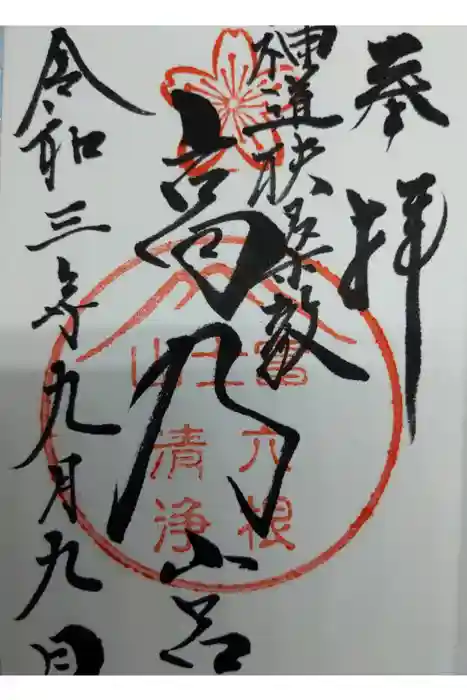 奉拝
神道扶桑教
高乃宮
富士山
六根
清浄
令和三年九月九日